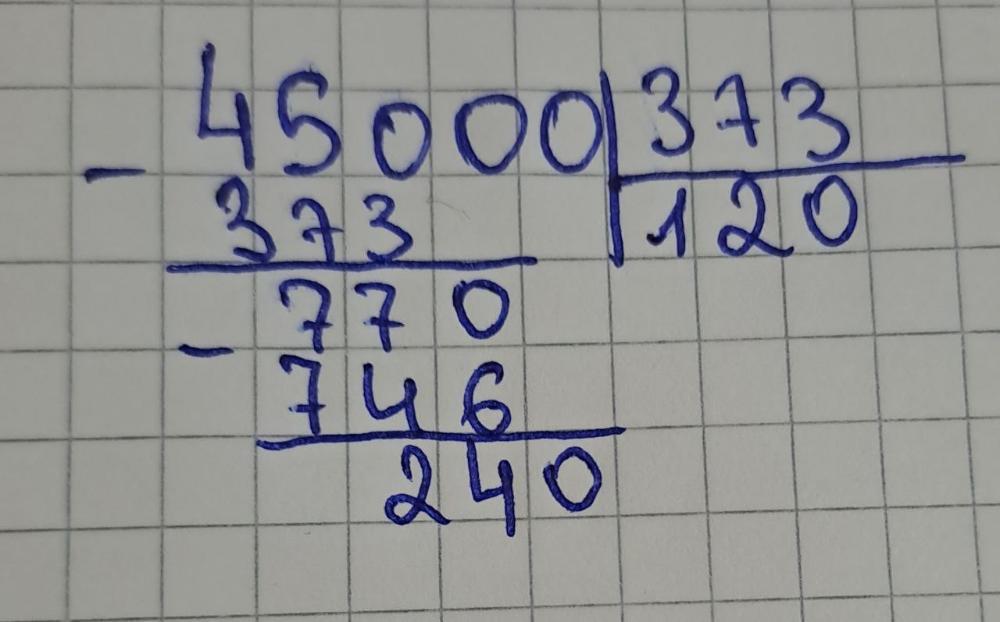 45000 373
- 373 120
770
- 746
240